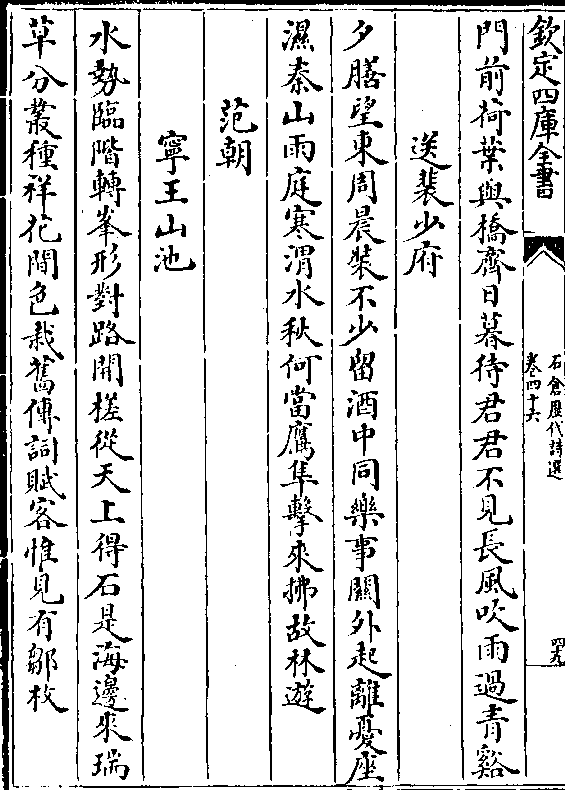 欽定四庫全書
石倉歷代詩選
卷四十六
四九
門前荷葉與橋齊日暮待君君不見長風吹雨過青谿
送裴少府
夕膳望東周晨裝不少留酒中同樂事關外起離憂座
濕秦山雨庭寒渭水秋何當鷹隼擊來拂故林遊
范朝
寧王山池
水勢臨階轉峯形對路開槎從天上得石是海邊來瑞
草分叢種祥花間色栽舊傳詞賦客惟見有鄒枚